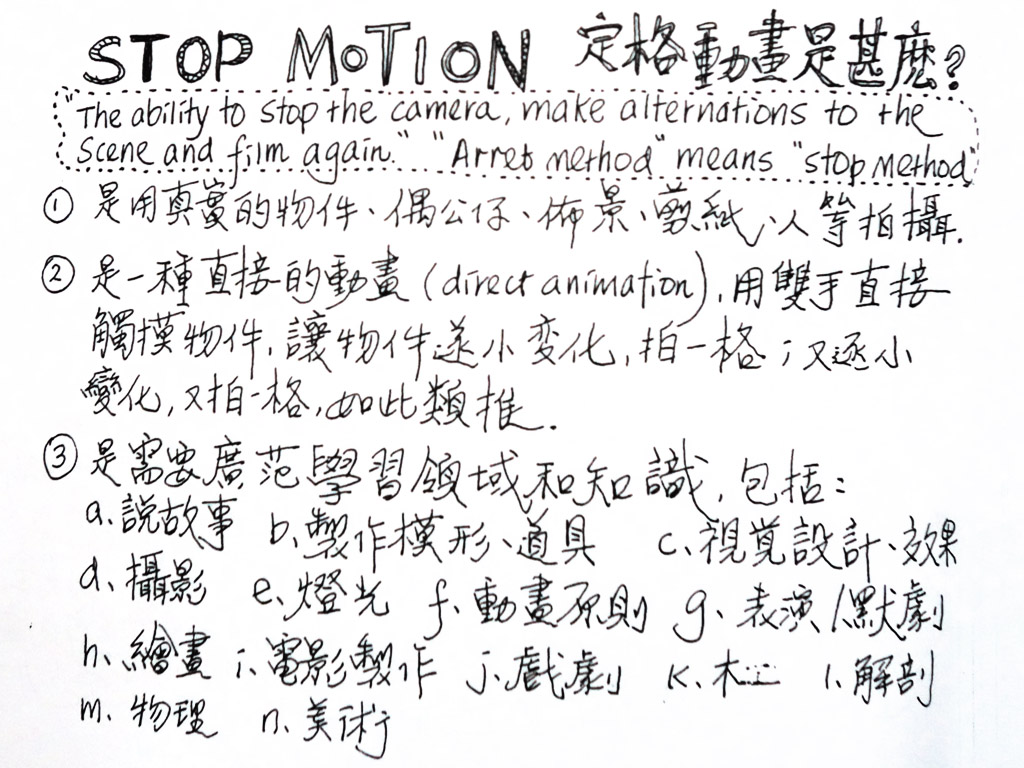 STOP MOTION 定格動畫是甚麼?
"The ability to stop the camera, make alternations to the
scene and film again." "Arret method" means "stop method"
① 是用真實的物件、偶公仔、佈景、剪紙、人等拍攝.
② 是一種直接的動畫(direct animation),用雙手直接
觸摸物件,讓物件逐小变化,拍一格;又逐小
變化,又拍一格,如此類推.
③ 是需要廣范學習領域和知識,包括:
a.說故事 b.製作模形、道具 c.視覚設計、效果
d.攝影 e.燈光 f.動畫原則 g.表演/默劇
h.繪畫 i.電影製作 j.戲劇 k.木工 l.解剖
m.物理 n.美術